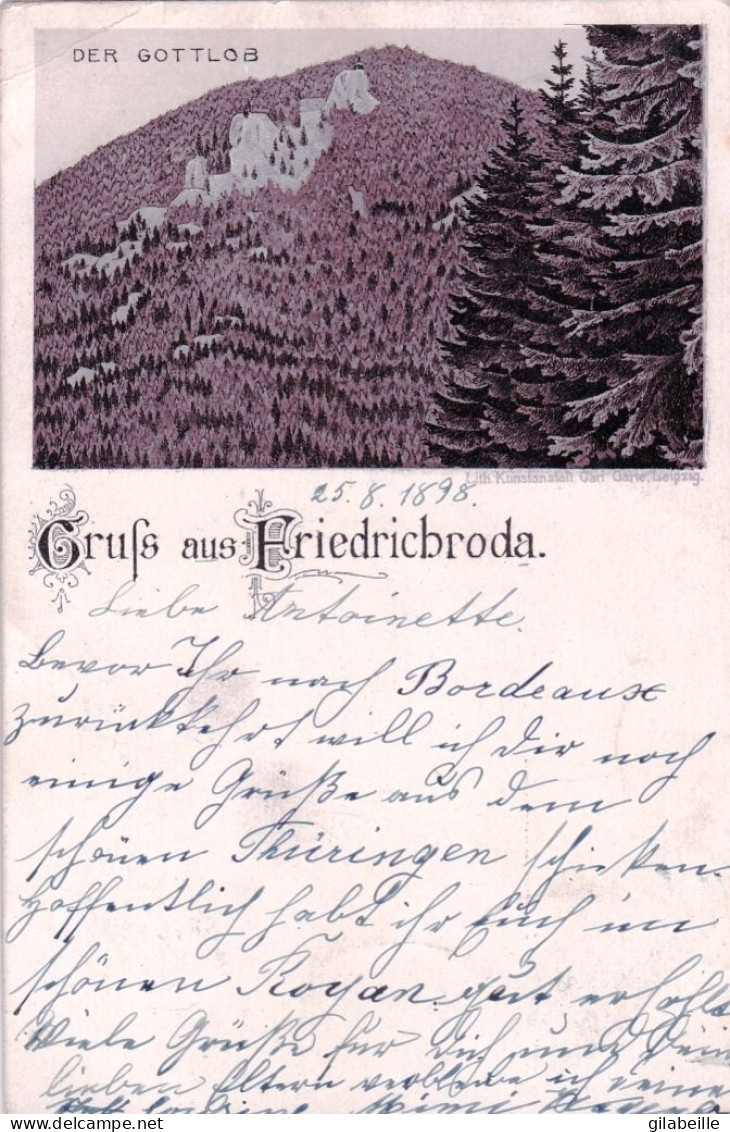 DER GOTTLOB
Lith. Kunstanstalt Carl Garte, Leipzig.
25. 8. 1898.
Gruſs aus Friedrichroda.
Liebe Antoinette.
Bevor Ihr nach Bordeaux
zurückkehrt will ich Dir noch
einige Grüße aus dem
schönen Thüringen schicken.
Hoffentlich habt ihr Euch im
schönen Royan gut erholt
Viele Grüße für dich und Deine
lieben Eltern verbleibe ich Deine
Mimi
gilabeille